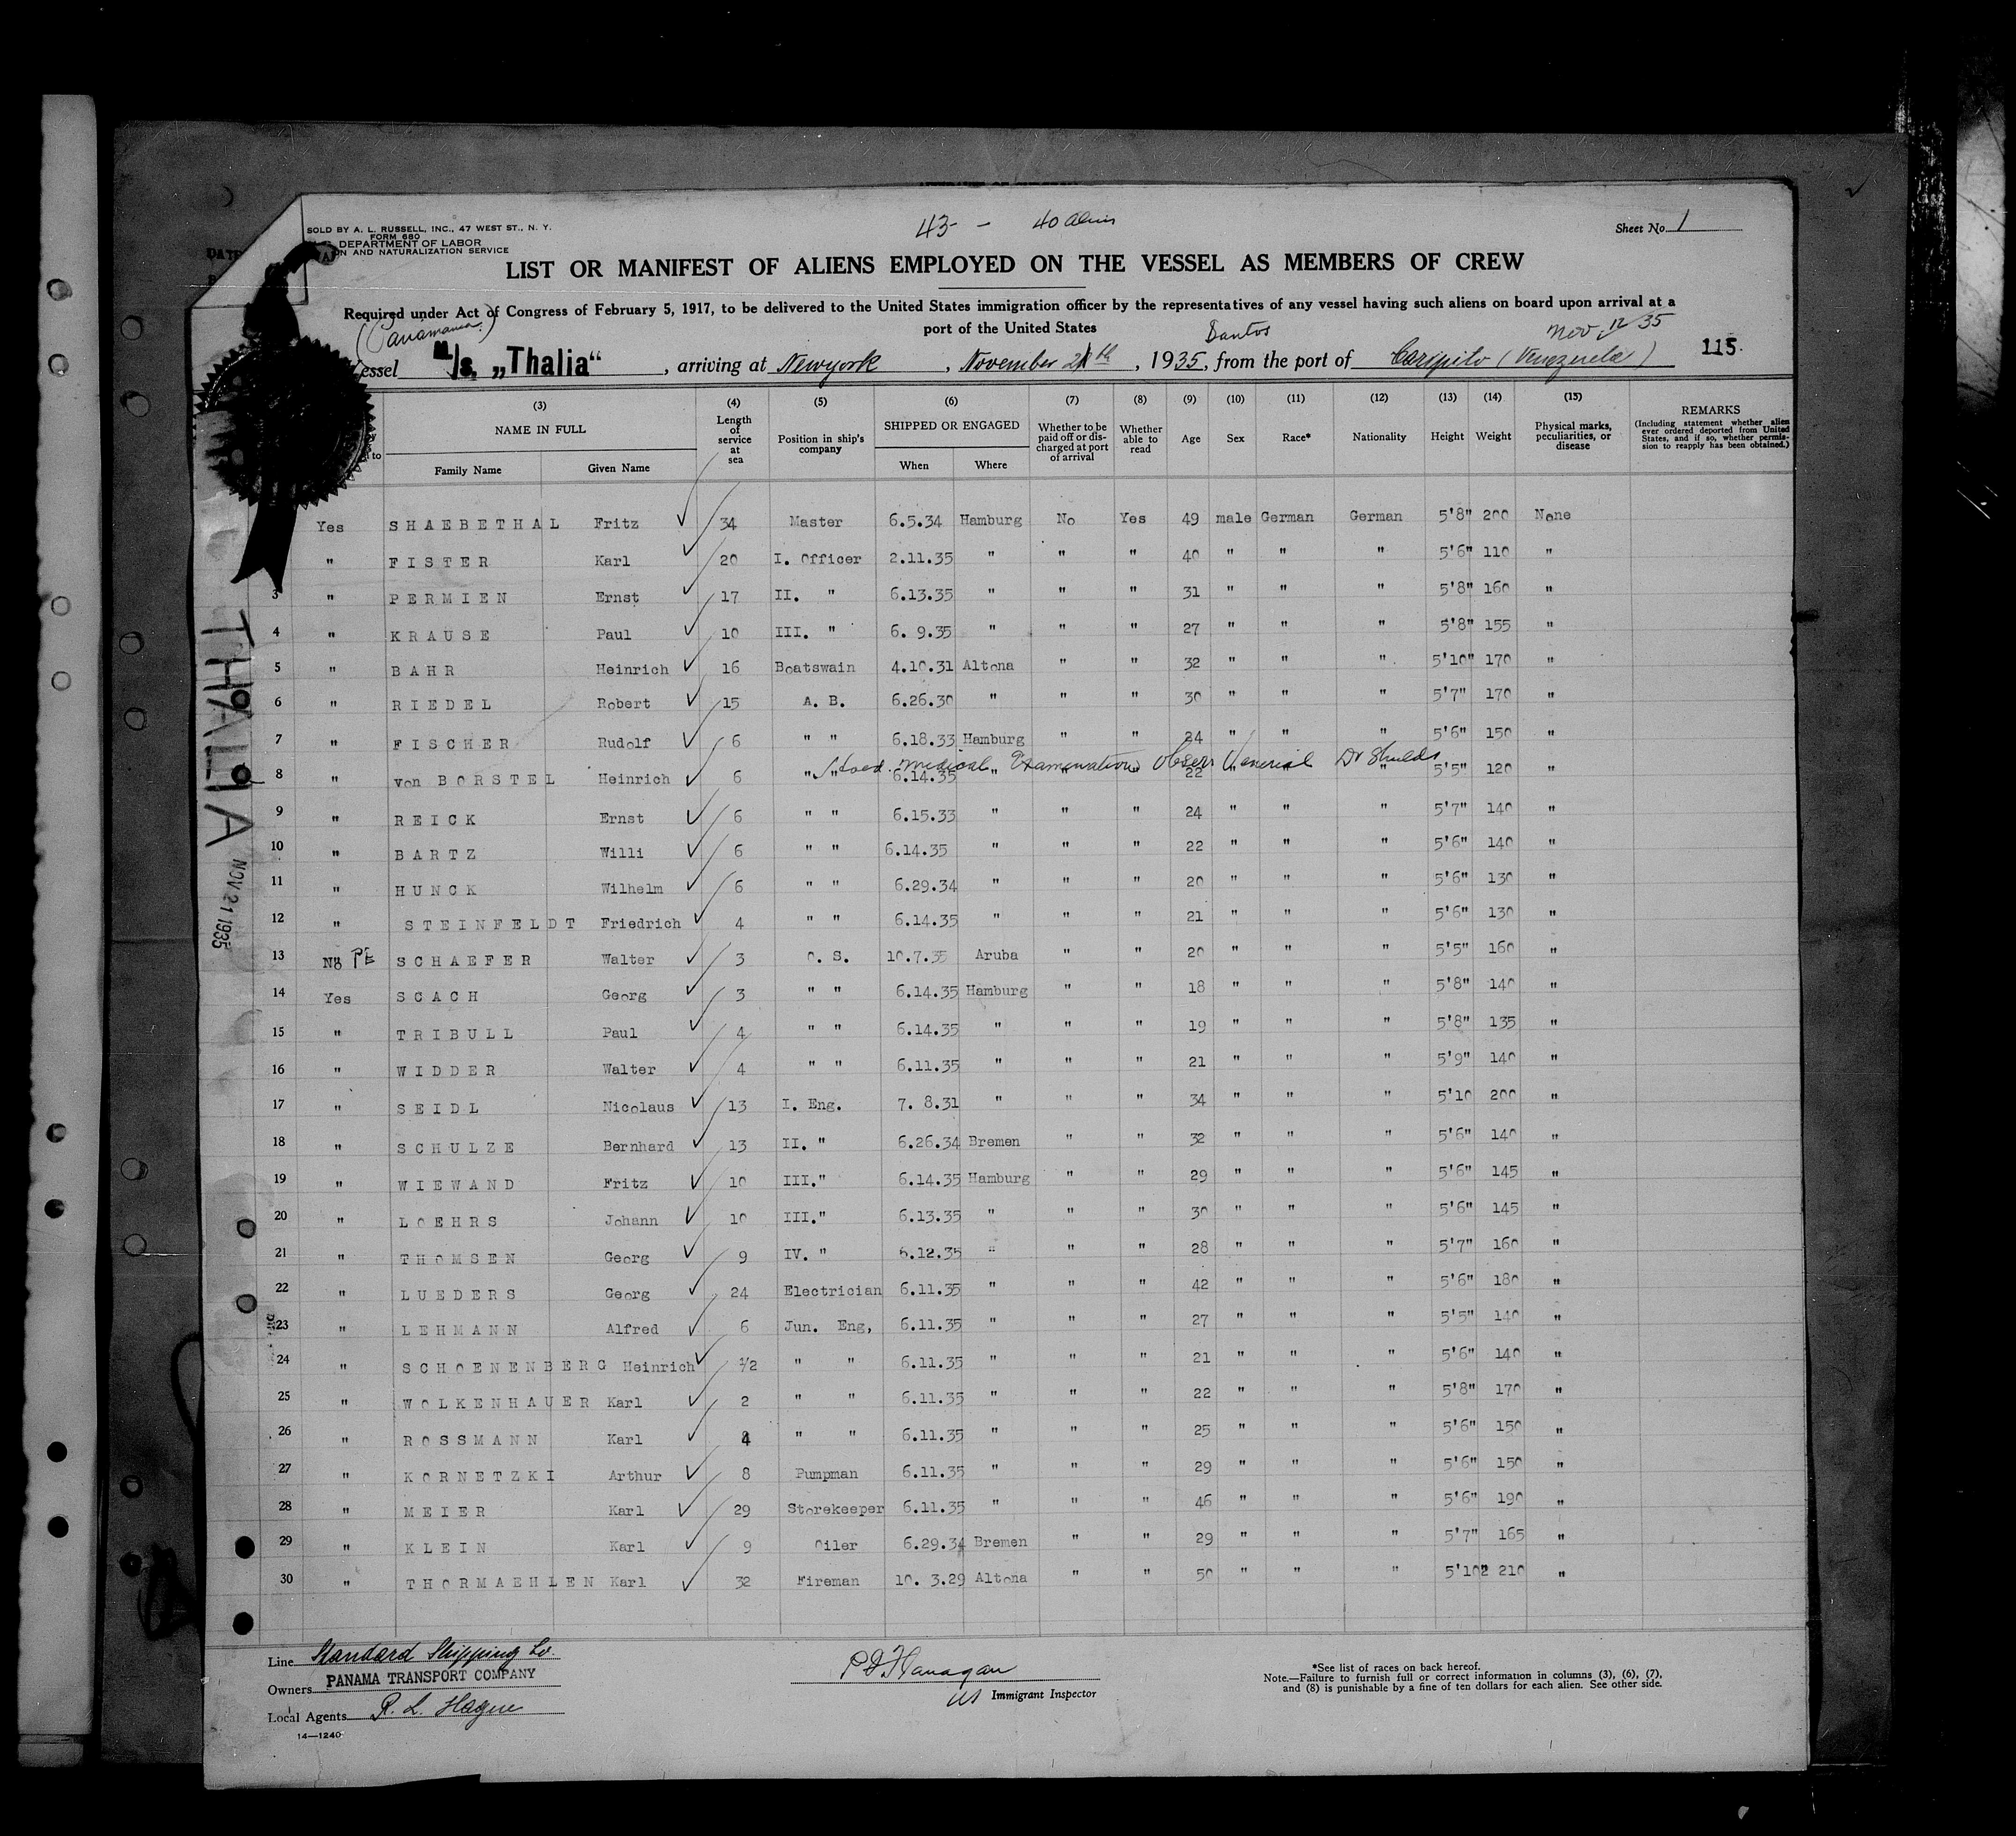 43 - 40 aliens
SOLD BY A. L. RUSSELL, INC., 47 WEST ST., N. Y.
FORM 680
DEPARTMENT OF LABOR
ON AND NATURALIZATION SERVICE
Sheet No. 1
LIST OR MANIFEST OF ALIENS EMPLOYED ON THE VESSEL AS MEMBERS OF CREW
Required under Act of Congress of February 5, 1917, to be delivered to the United States immigration officer by the representatives of any vessel having such aliens on board upon arrival at a
port of the United States
(Panamanian) Santos Nov. 12 35
essel M/s. „Thalia“, arriving at Newyork, November 21th, 1935, from the port of Caripito (Venezuela) 115
(3) (4) (5) (6) (7) (8) (9) (10) (11) (12) (13) (14) (15)
NAME IN FULL Length of service at sea Position in ship's company SHIPPED OR ENGAGED Whether to be paid off or discharged at port of arrival Whether able to read Age Sex Race* Nationality Height Weight Physical marks, peculiarities, or disease REMARKS (Including statement whether alien ever ordered deported from United States, and if so, whether permission to reapply has been obtained.)
to Family Name Given Name When Where
Yes SHAEBETHAL Fritz 34 Master 6.5.34 Hamburg No Yes 49 male German German 5'8" 200 None
" FISTER Karl 20 I. Officer 2.11.35 " " " 40 " " " 5'6" 110 "
3 " PERMIEN Ernst 17 II. " 6.13.35 " " " 31 " " " 5'8" 160 "
4 " KRAUSE Paul 10 III. " 6. 9.35 " " " 27 " " " 5'8" 155 "
5 " BAHR Heinrich 16 Boatswain 4.10.31 Altona " " 32 " " " 5'10" 170 "
6 " RIEDEL Robert 15 A. B. 6.26.30 " " " 30 " " " 5'7" 170 "
7 " FISCHER Rudolf 6 " " 6.18.33 Hamburg " " 24 " " " 5'6" 150 "
medical Examination Observ Venerial Dr Shields
8 " von BORSTEL Heinrich 6 " " 6.14.35 " " " 22 " " " 5'5" 120 "
9 " REICK Ernst 6 " " 6.15.33 " " " 24 " " " 5'7" 140 "
10 " BARTZ Willi 6 " " 6.14.35 " " " 22 " " " 5'6" 140 "
11 " HUNCK Wilhelm 6 " " 6.29.34 " " " 20 " " " 5'6" 130 "
12 " STEINFELDT Friedrich 4 " " 6.14.35 " " " 21 " " " 5'6" 130 "
13 No PE SCHAEFER Walter 3 O. S. 10.7.35 Aruba " " 20 " " " 5'5" 160 "
14 Yes SCACH Georg 3 " " 6.14.35 Hamburg " " 18 " " " 5'8" 140 "
15 " TRIBULL Paul 4 " " 6.14.35 " " " 19 " " " 5'8" 135 "
16 " WIDDER Walter 4 " " 6.11.35 " " " 21 " " " 5'9" 140 "
17 " SEIDL Nicolaus 13 I. Eng. 7. 8.31 " " " 34 " " " 5'10 200 "
18 " SCHULZE Bernhard 13 II. " 6.26.34 Bremen " " 32 " " " 5'6" 140 "
19 " WIEWAND Fritz 10 III." 6.14.35 Hamburg " " 29 " " " 5'6" 145 "
20 " LOEHRS Johann 10 III." 6.13.35 " " " 30 " " " 5'6" 145 "
21 " THOMSEN Georg 9 IV. " 6.12.35 " " " 28 " " " 5'7" 160 "
22 " LUEDERS Georg 24 Electrician 6.11.35 " " " 42 " " " 5'6" 180 "
23 " LEHMANN Alfred 6 Jun. Eng, 6.11.35 " " " 27 " " " 5'5" 140 "
24 " SCHOENENBERG Heinrich 1/2 " " 6.11.35 " " " 21 " " " 5'6" 140 "
25 " WOLKENHAUER Karl 2 " " 6.11.35 " " " 22 " " " 5'8" 170 "
26 " ROSSMANN Karl 4 " " 6.11.35 " " " 25 " " " 5'6" 150 "
27 " KORNETZKI Arthur 8 Pumpman 6.11.35 " " " 29 " " " 5'6" 150 "
28 " MEIER Karl 29 Storekeeper 6.11.35 " " " 46 " " " 5'6" 190 "
29 " KLEIN Karl 9 Oiler 6.29.34 Bremen " " 29 " " " 5'7" 165 "
30 " THORMAEHLEN Karl 32 Fireman 10. 3.29 Altona " " 50 " " " 5'10" 210 "
THALIA
NOV 21 1935
Line Standard Shipping Co.
Owners PANAMA TRANSPORT COMPANY
Local Agents R. L. Hague
14—1240
P D Flanagan
US Immigrant Inspector
*See list of races on back hereof.
Note.—Failure to furnish full or correct information in columns (3), (6), (7),
and (8) is punishable by a fine of ten dollars for each alien. See other side.